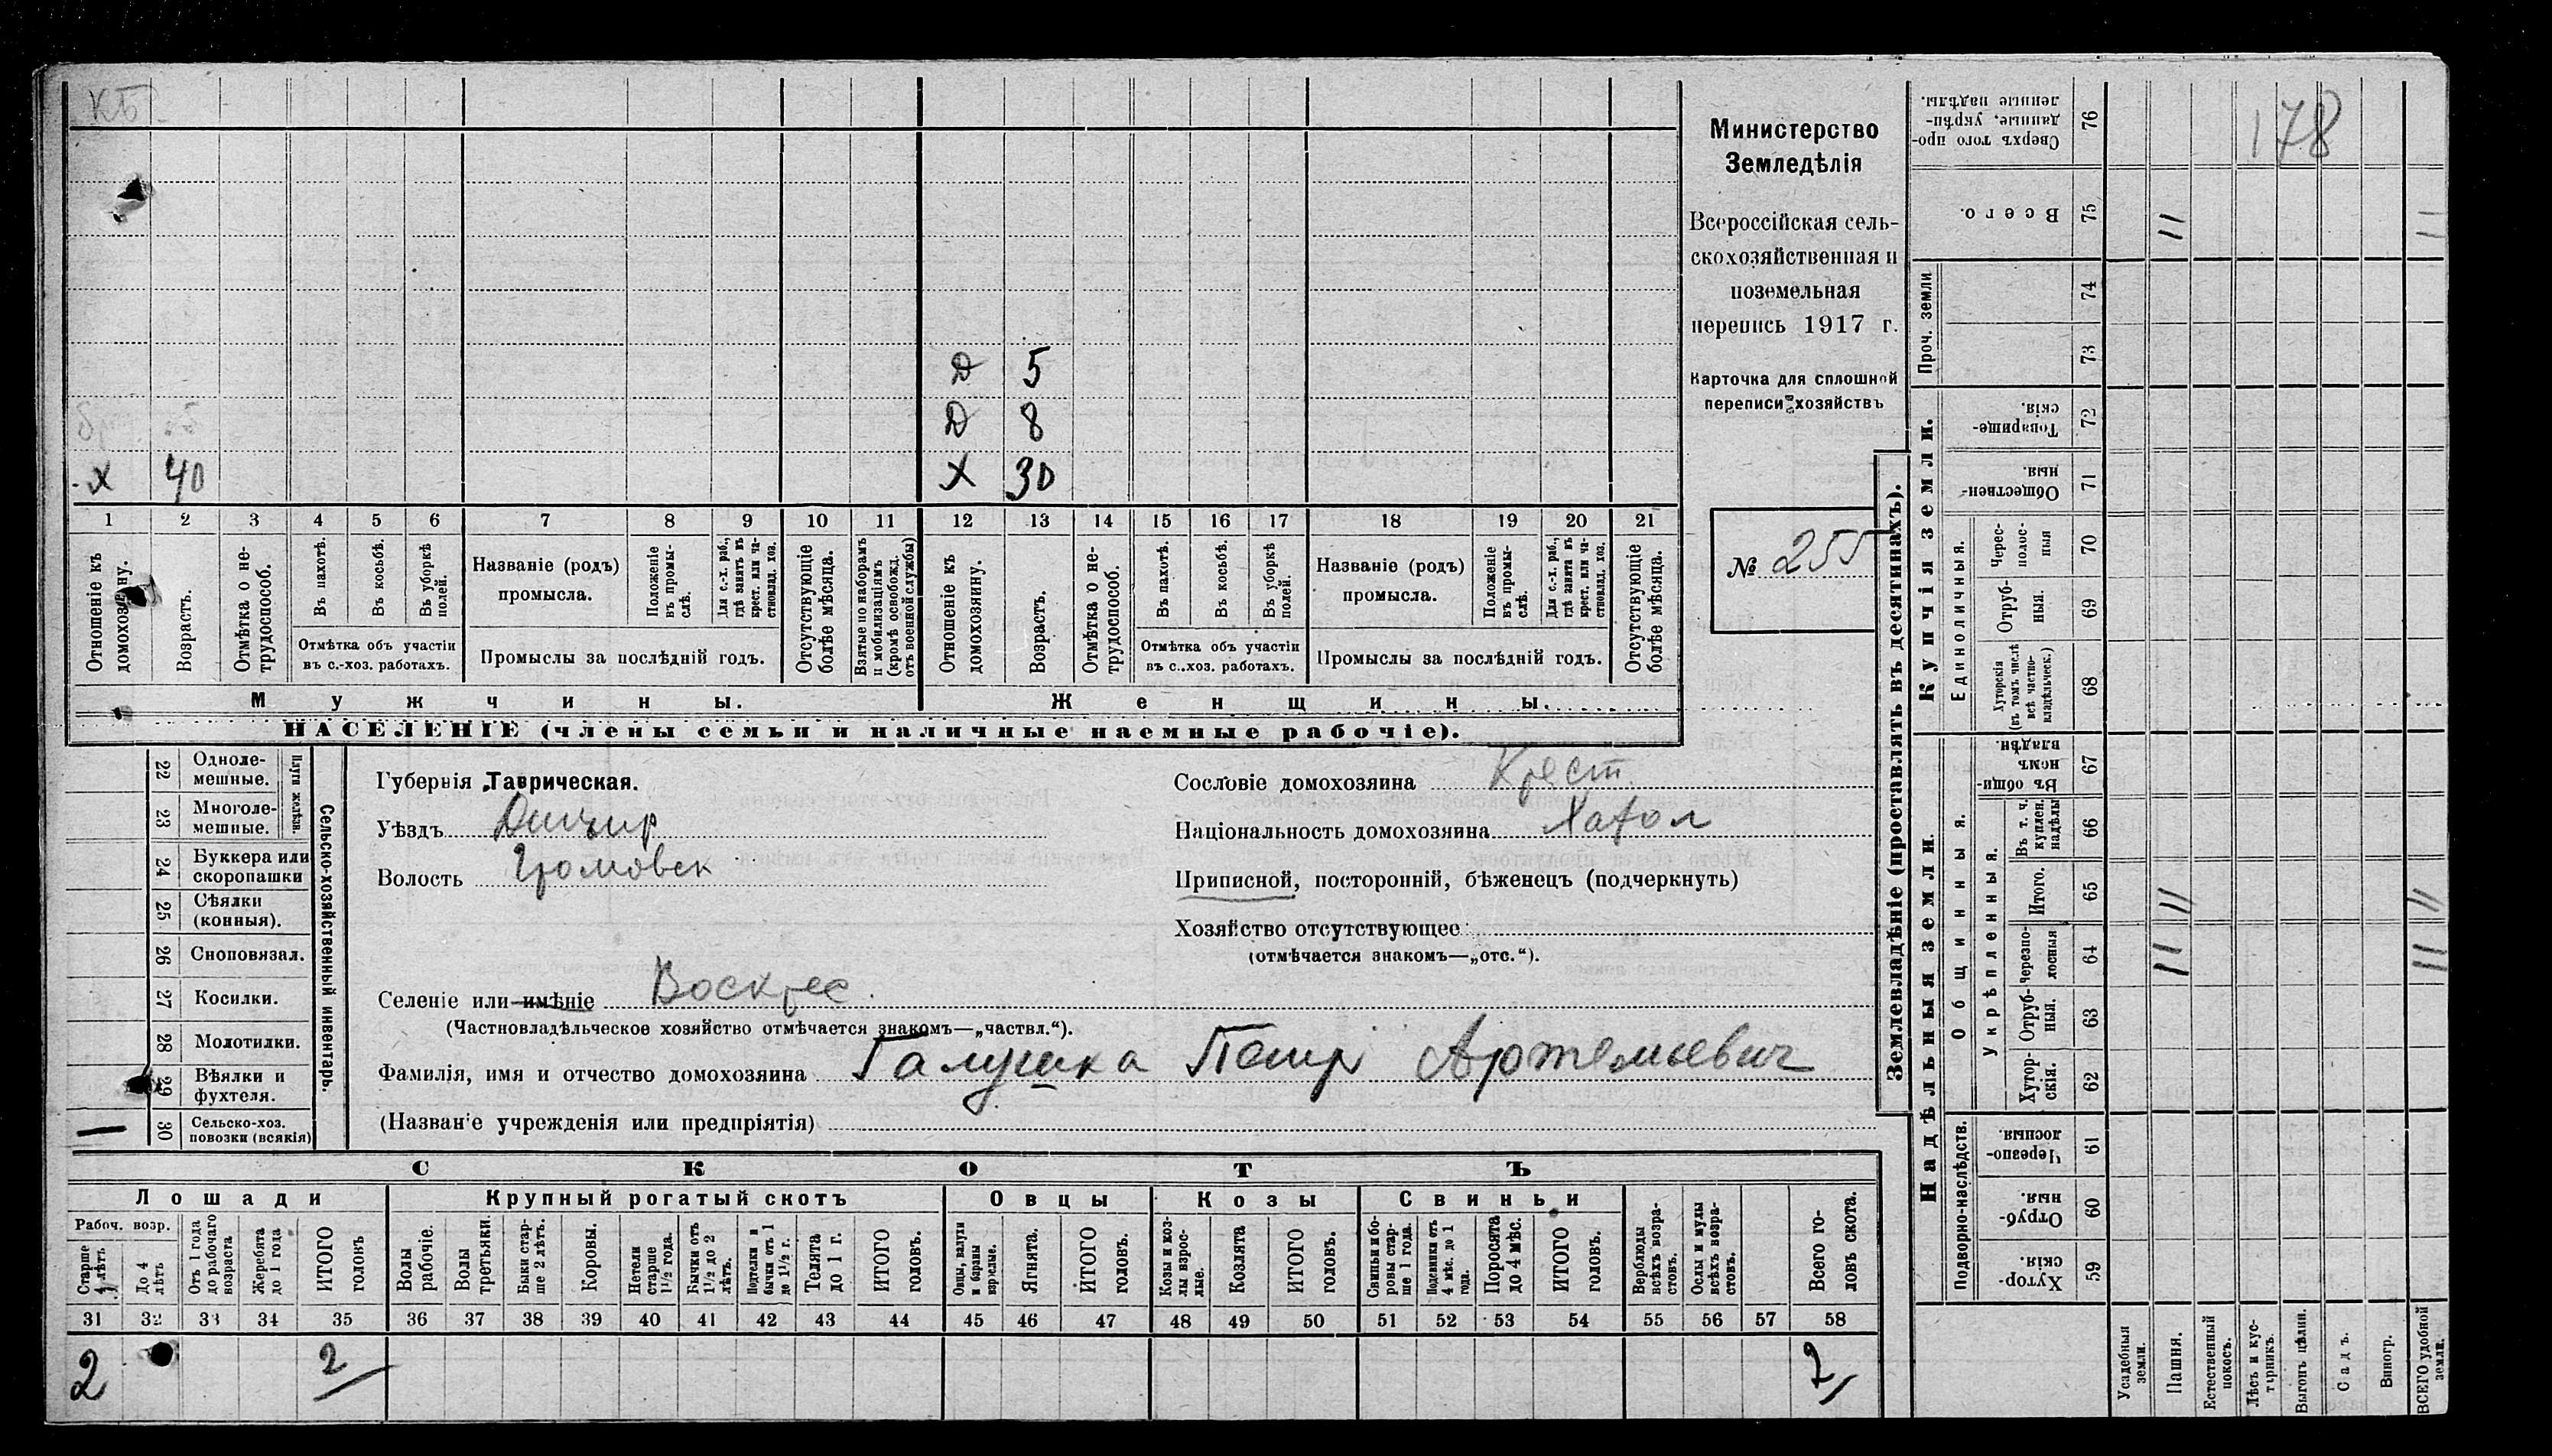 КБ
178
Д 5
Д 8
Х 40 Х 30
1 2 3 4 5 6 7 8 9 10 11 12 13 14 15 16 17 18 19 20 21
Отношеніе къ домохозяину.
Возрастъ.
Отмѣтка о нетрудоспособ.
Въ пахотѣ.
Въ косьбѣ.
Въ уборкѣ полей.
Отмѣтка объ участіи
въ с.-хоз. работахъ.
Названіе (родъ)
промысла.
Положеніе въ промыслѣ.
Для с.-х. раб., гдѣ занятъ въ крест. или частновлад. хоз.
Промыслы за послѣдній годъ.
Отсутствующіе болѣе мѣсяца.
Взятые по наборамъ и мобилизаціямъ (кромѣ освобожд. отъ военной службы)
Отношеніе къ домохозяину.
Возрастъ.
Отмѣтка о нетрудоспособ.
Въ пахотѣ.
Въ косьбѣ.
Въ уборкѣ полей.
Отмѣтка объ участіи
въ с.-хоз. работахъ.
Названіе (родъ)
промысла.
Положеніе въ промыслѣ.
Для с.-х. раб., гдѣ занята въ крест. или частновлад. хоз.
Промыслы за послѣдній годъ.
Отсутствующіе болѣе мѣсяца.
Мужчины. Женщины.
НАСЕЛЕНІЕ (члены семьи и наличные наемные рабочіе).
Министерство
Земледѣлія
Всероссійская сель-
скохозяйственная и
поземельная
перепись 1917 г.
Карточка для сплошной
переписи хозяйствъ
№ 255
22 Однолемешные.
23 Многолемешные.
Плуги желѣзн.
24 Буккера или скоропашки
25 Сѣялки (конныя).
26 Сноповязал.
27 Косилки.
28 Молотилки.
29 Вѣялки и фухтеля.
30 Сельско-хоз. повозки (всякія)
Сельско-хозяйственный инвентарь.
Губернія Таврическая.
Уѣздъ Днипр
Волость Громовск
Селеніе или имѣніе Воскрес.
(Частновладѣльческое хозяйство отмѣчается знакомъ—„частвл.“).
Фамилія, имя и отчество домохозяина Галушка Петр Артемьевич
(Названіе учрежденія или предпріятія)
Сословіе домохозяина Крест.
Національность домохозяина Хахол
Приписной, посторонній, бѣженецъ (подчеркнуть)
Хозяйство отсутствующее
(отмѣчается знакомъ—„отс.“).
СКОТЪ
Лошади Крупный рогатый скотъ Овцы Козы Свиньи
Рабоч. возр.
Старше 4 лѣтъ
До 4 лѣтъ
Отъ 1 года до рабочаго возраста
Жеребята до 1 года
ИТОГО головъ
Волы рабочіе.
Волы третьяки.
Быки старше 2 лѣтъ.
Коровы.
Нетели старше 1½ года.
Бычки отъ 1½ до 2 лѣтъ.
Подтелки и бычки отъ 1 до 1½ г.
Телята до 1 г.
ИТОГО головъ.
Овцы, валухи и бараны взрослые.
Ягнята.
ИТОГО головъ.
Козы и козлы взрослые.
Козлята
ИТОГО головъ.
Свиньи и боровы старше 1 года.
Подсвинки отъ 4 мѣс. до 1 года.
Поросята до 4 мѣс.
ИТОГО головъ.
Верблюды всѣхъ возрастовъ.
Ослы и мулы всѣхъ возрастовъ.
Всего головъ скота.
31 32 33 34 35 36 37 38 39 40 41 42 43 44 45 46 47 48 49 50 51 52 53 54 55 56 57 58
2 2 2
Землевладѣніе (проставлять въ десятинахъ).
Купчія земли.
76 Сверхъ того проданные, укрѣпленные надѣлы.
75 Всего. 11 11
Проч. земли
74
73
72 Товарищескія.
71 Общественныя.
Единоличныя.
70 Чересполосныя
69 Отрубныя.
68 Хуторскія (въ томъ числѣ всѣ частновладѣльческ.)
Надѣльныя земли.
Общинныя.
67 Въ общинномъ владѣн.
Укрѣпленныя.
66 Въ т. ч. куплен. надѣлы
65 Итого. 11 11
64 Черезполосныя 11 11
63 Отрубныя.
62 Хуторскія.
Подворно-наслѣдств.
61 Черезполосныя.
60 Отрубныя.
59 Хуторскія.
Усадебныя земли.
Пашня.
Естественный покосъ.
Лѣсъ и кустарникъ.
Выгонъ цѣлин.
Садъ.
Виногр.
ВСЕГО удобной земли.